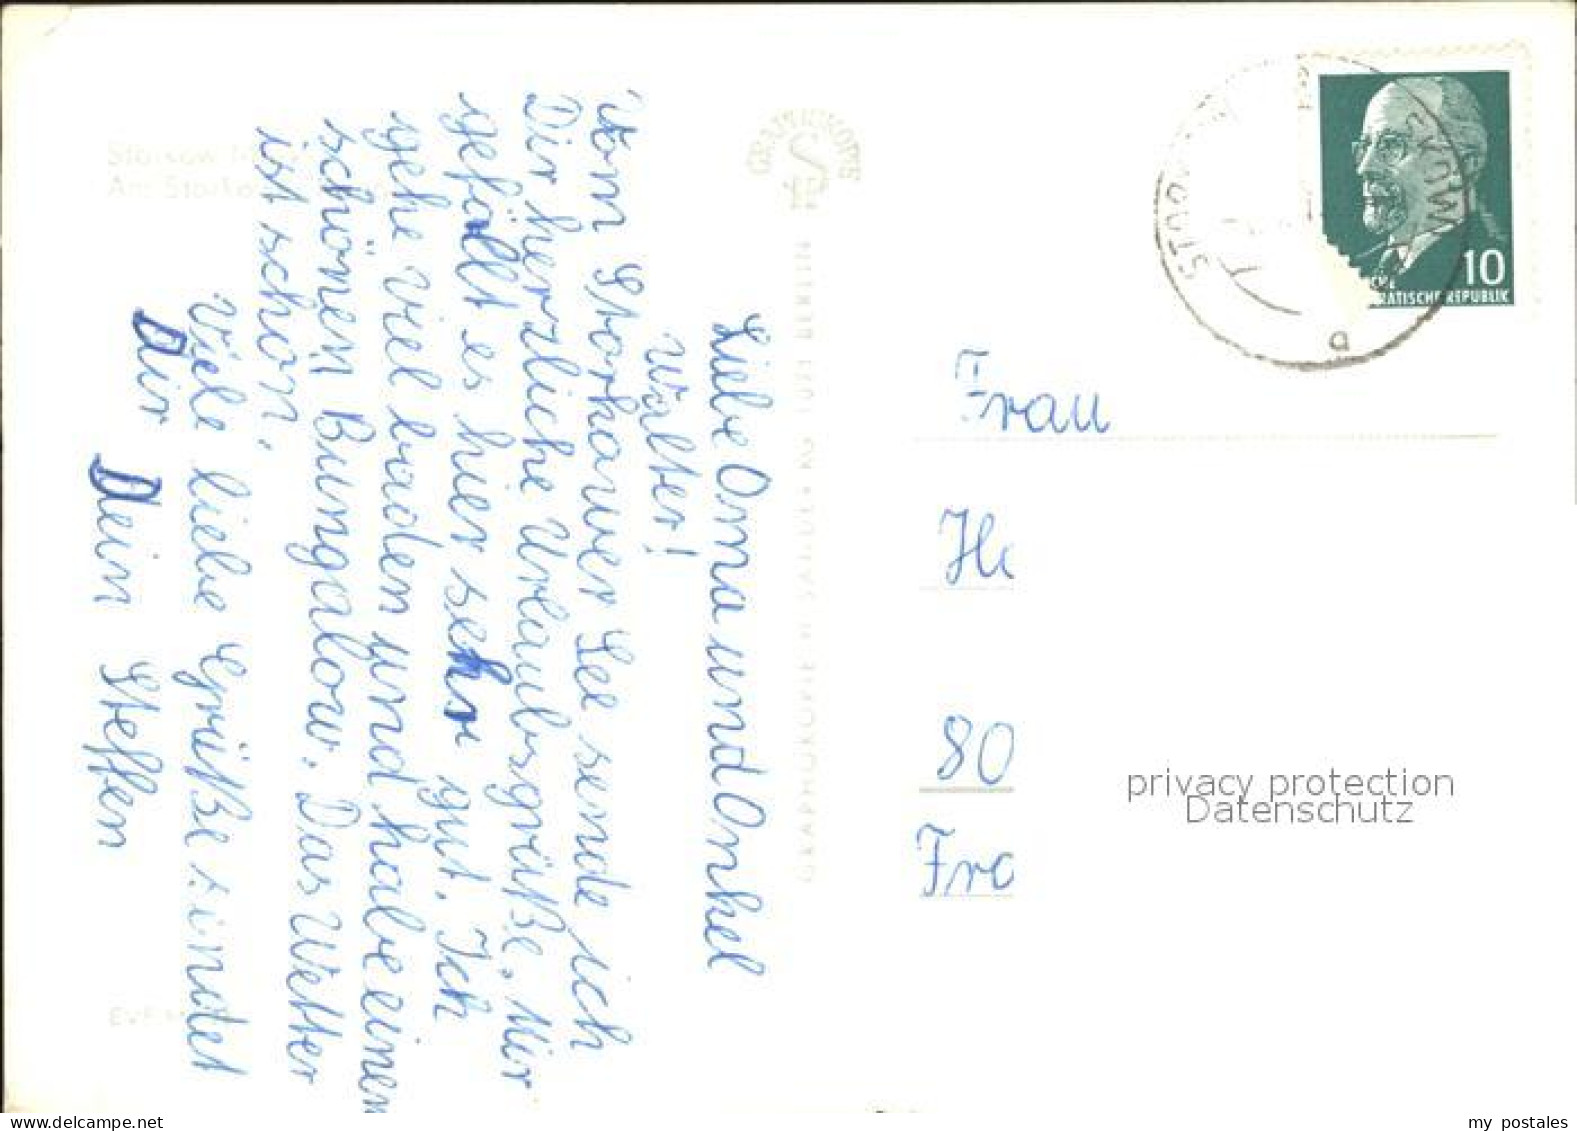 Liebe Oma und Onkel
Walter!
Vom Storkower See sende ich
Dir herzliche Urlaubsgrüße. Mir
gefällt es hier sehr gut. Ich
gehe viel baden und habe einen
schönen Bungalow. Das Wetter
ist schön.
Viele liebe Grüße sindet
Dir
Dein Steffen
Storkow
Am Storkower
GRAPHOKOPIE H. SANDER KG 1071 BERLIN
GRAPHOKOPIE
STORKOW
a
10
DEMOKRATISCHE REPUBLIK
Frau
80
privacy protection
Datenschutz
my postales
delcampe.net